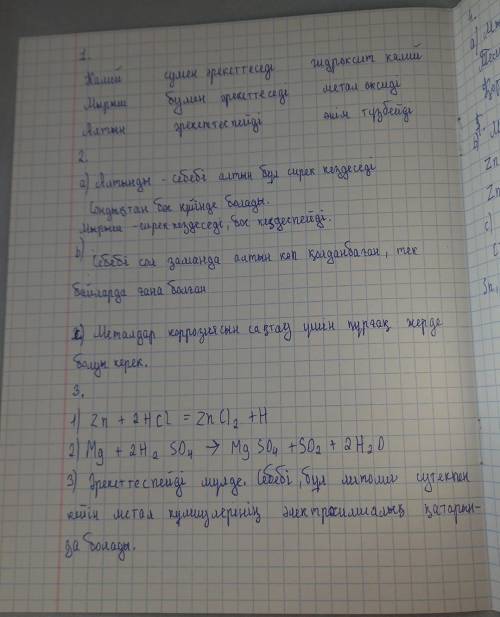 1.
Калий сумен әрекеттеседі гидроксит калий
Мырыш бумен әрекеттеседі метал оксиді
Алтын әрекеттеспейді өнім түзбейді
2.
а) Алтынды - себебі алтын бұл сирек кездеседі
Сондықтан бос күйінде болады.
Мырыш - сирек кездеседі, бос кездеспейді.
b) Себебі сол заманда алтын көп қолданбаған, тек
байларда ғана болған
c) Металдар коррозиясын сақтау үшін құрғақ жерде
болуы керек.
3.
1) Zn + 2HCl = ZnCl2 + H
2) Mg + 2H2SO4 → MgSO4 + SO2 + 2H2O
3) Әрекеттеспейді мүлде. Себебі, бұл сутекпен
кейін метал қатарын-
да болады.
4.
a)
b)
Zn
Zn
c)